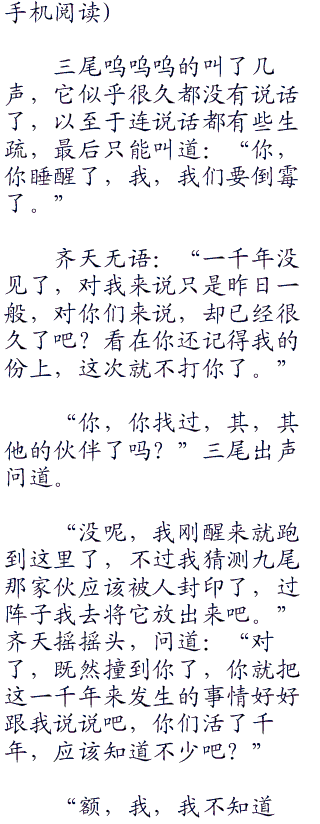 手机阅读）
三尾呜呜呜的叫了几
声，它似乎很久都没有说话
了，以至于连说话都有些生
疏，最后只能叫道：“你，
你睡醒了，我，我们要倒霉
了。”
齐天无语：“一千年没
见了，对我来说只是昨日一
般，对你们来说，却已经很
久了吧？看在你还记得我的
份上，这次就不打你了。”
“你，你找过，其，其
他的伙伴了吗？”三尾出声
问道。
“没呢，我刚醒来就跑
到这里了，不过我猜测九尾
那家伙应该被人封印了，过
阵子我去将它放出来吧。”
齐天摇摇头，问道：“对
了，既然撞到你了，你就把
这一千年来发生的事情好好
跟我说说吧，你们活了千
年，应该知道不少吧？”
“额，我，我不知道